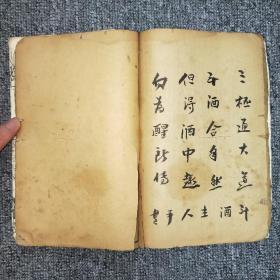 三杯通大道
斗酒合自然
但得酒中趣
勿為醒者傳
斗酒主人手書